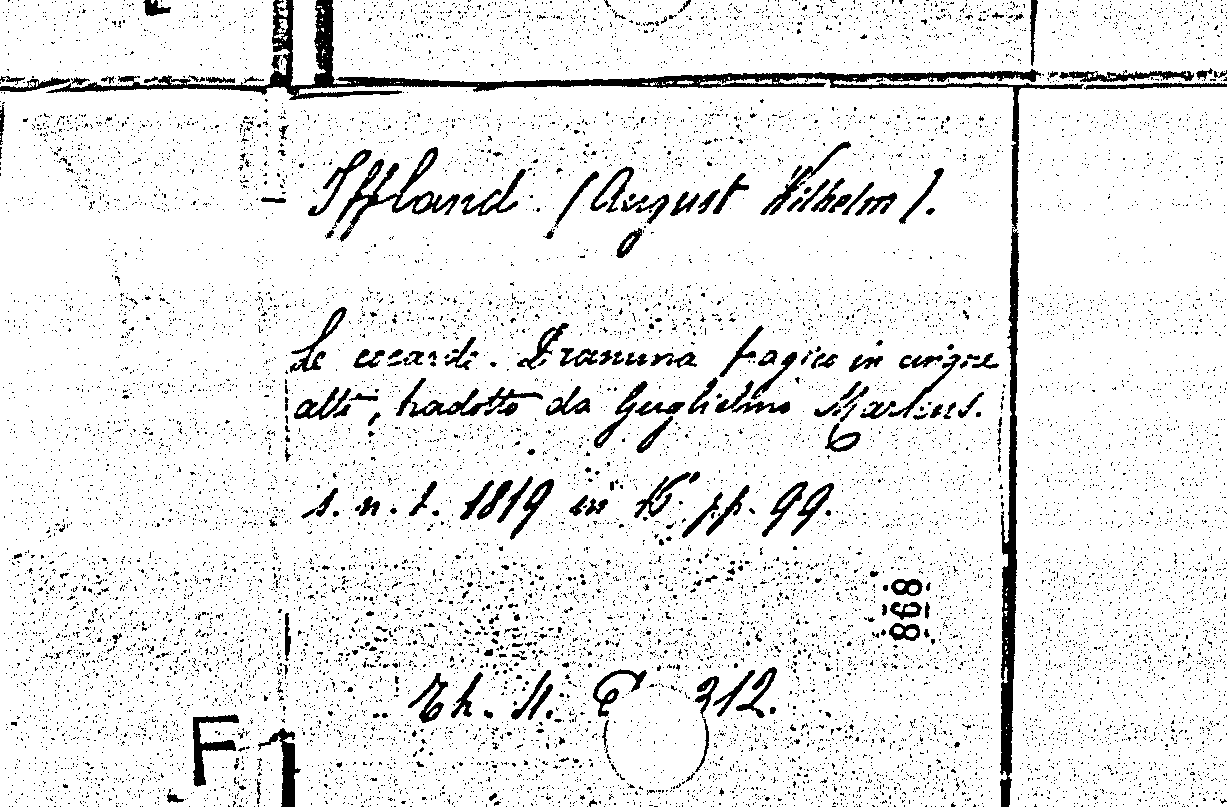 Iffland (August Wilhelm).
Le cocarde. Dramma tragico in cinque
atti, tradotto da Guglielmo Martens.
s. n. t. 1819 in 16° pp. 99.
868
312.
F